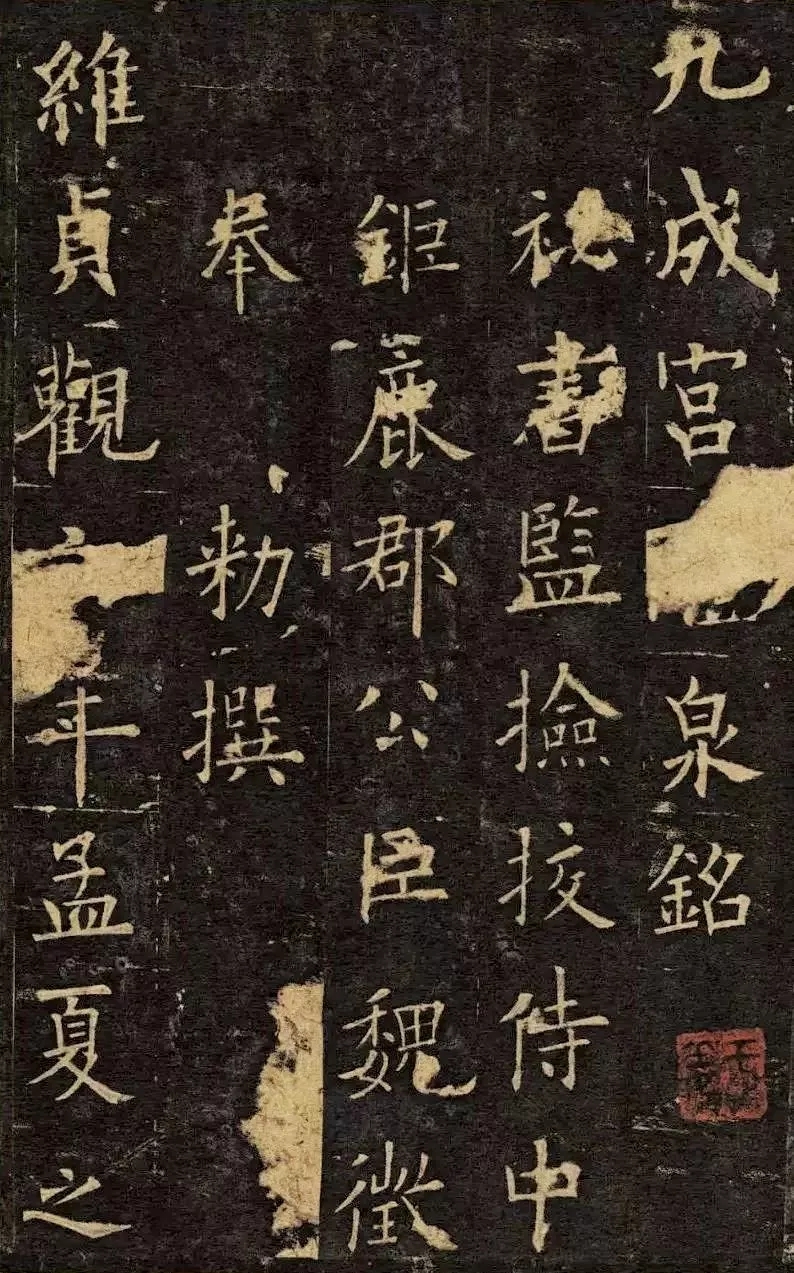 九成宮泉銘
祕書監撿挍侍中
鉅鹿郡公臣魏徵
奉勑撰
維貞觀六年孟夏之